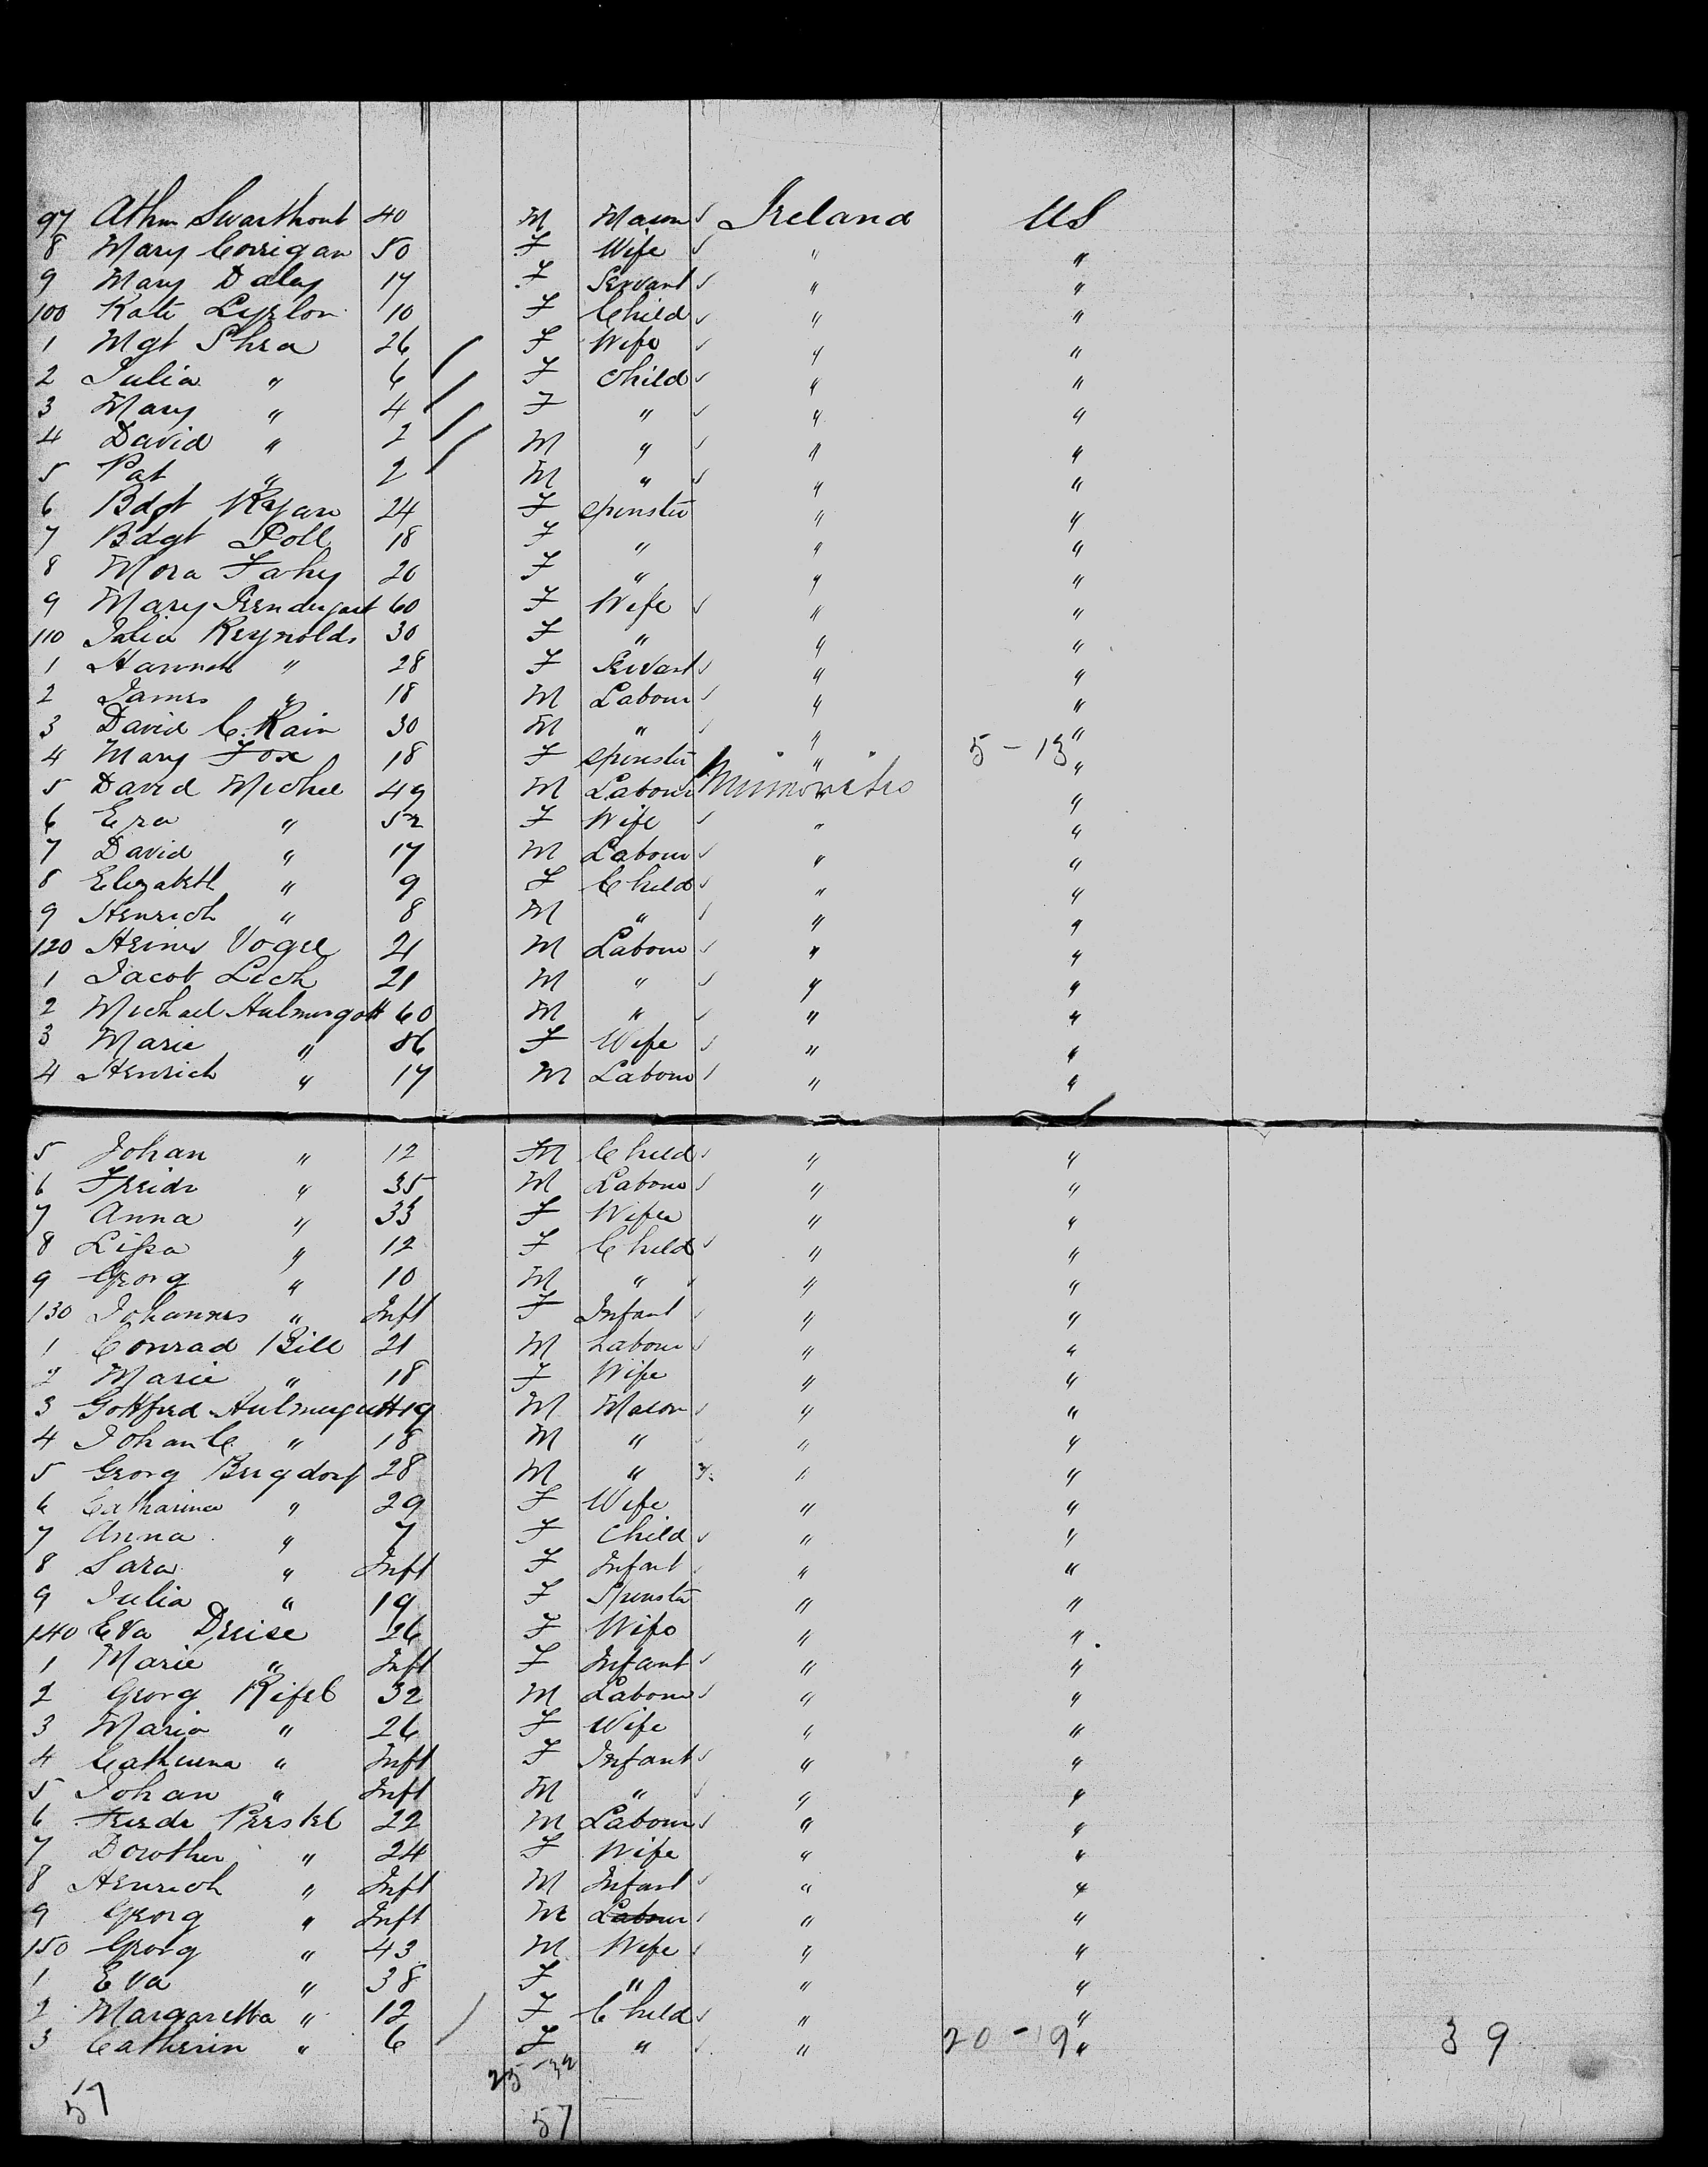 97 Athm Swarthout 40 M Mason Ireland US
8 Mary Corrigan 50 F Wife " "
9 Mary Daley 17 F Servant " "
100 Kate 10 F Child " "
1 Mgt Shea 26 F Wife " "
2 Julia " 6 F Child " "
3 Mary " 4 F " " "
4 David " 2 M " " "
5 Pat " 2 M " " "
6 Bdgt Ryan 24 F Spinster " "
7 Bdgt 18 F " " "
8 Nora Fahy 20 F " " "
9 Mary Prendergast 60 F Wife " "
110 Julia Reynolds 30 F " " "
1 Hannah " 28 F Servant " "
2 James " 18 M Labour " "
3 David C. Kain 30 M " " "
4 Mary Fox 18 F Spinster " 5-13 "
5 David Michel 49 M Labour "
6 Eva " 52 F Wife " "
7 David " 17 M Labour " "
8 Elizabeth " 9 F Child " "
9 Henrich " 8 M " " "
120 Vogel 21 M Labour " "
1 Jacob 21 M " " "
2 Michael 60 M " " "
3 Marie " 56 F Wife " "
4 Henrich " 17 M Labour " "
5 Johan " 12 M Child " "
6 Freidr " 35 M Labour " "
7 Anna " 33 F Wife " "
8 Lissa " 12 F Child " "
9 Georg " 10 M " " "
130 Johannes " Inft F Infant " "
1 Conrad Bill 21 M Labour " "
2 Marie " 18 F Wife " "
3 Gottfred 19 M Mason " "
4 Johan C. " 18 M " " "
5 Georg Bergdorf 28 M " " "
6 Catharina " 29 F Wife " "
7 Anna " 7 F Child " "
8 Sara " Inft F Infant " "
9 Julia " 19 F Spinster " "
140 Eva Dreise 26 F Wife " "
1 Marie " Inft F Infant " "
2 Georg Rifel 32 M Labour " "
3 Maria " 26 F Wife " "
4 Catherina " Inft F Infant " "
5 Johan " Inft M " " "
6 Freidr 22 M Labour " "
7 Dorothea " 24 F Wife " "
8 Henrich " Inft M Infant " "
9 Georg " Inft M Labour " "
150 Georg " 43 M Wife " "
1 Eva " 38 F " " "
2 Margaretta " 12 F Child " "
3 Catherin " 6 F " " 20-19 " 39
25-32
57
57